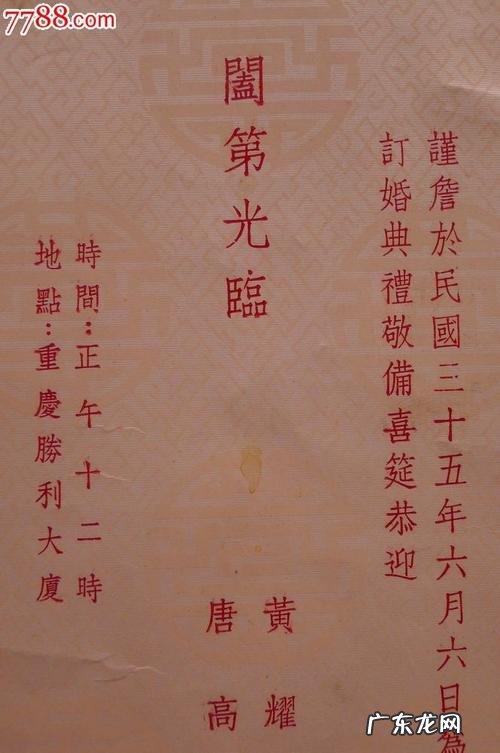 7788.com
謹詹於民國三十五年六月六日為
訂婚典禮敬備喜筵恭迎
闔第光臨
黃耀
唐高
時間：正午十二時
地點：重慶勝利大廈
广东龙网